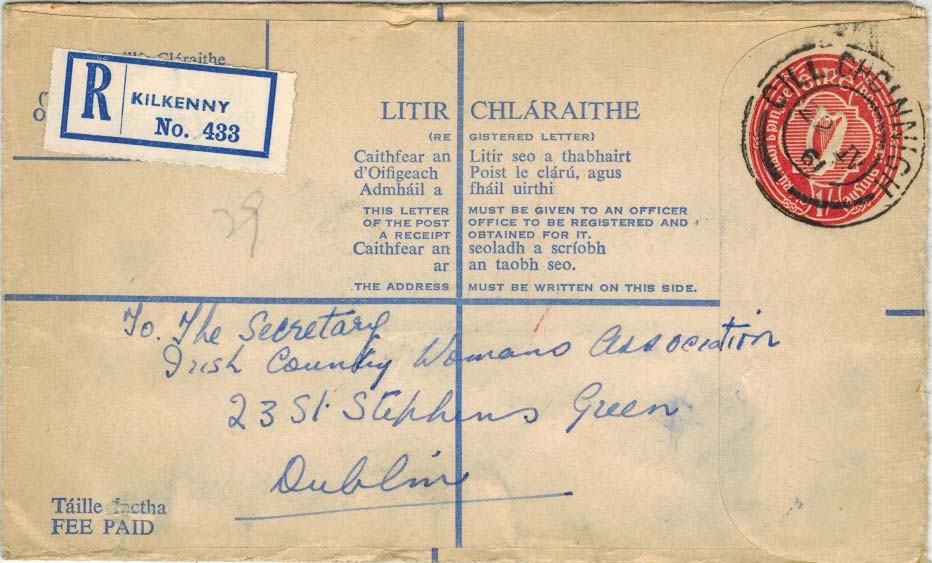 Cláraithe
R KILKENNY
No. 433
LITIR CHLÁRAITHE
(REGISTERED LETTER)
Caithfear an Litir seo a thabhairt
d'Oifigeach Poist le clárú, agus
Admháil a fháil uirthi
THIS LETTER MUST BE GIVEN TO AN OFFICER
OF THE POST OFFICE TO BE REGISTERED AND
A RECEIPT OBTAINED FOR IT.
Caithfear an seoladh a scríobh
ar an taobh seo.
THE ADDRESS MUST BE WRITTEN ON THIS SIDE.
CILL CHOINNIGH
1/-
29
To. The Secretary
Irish Country Womans Association
23 St. Stephens Green
Dublin
Táille íoctha
FEE PAID